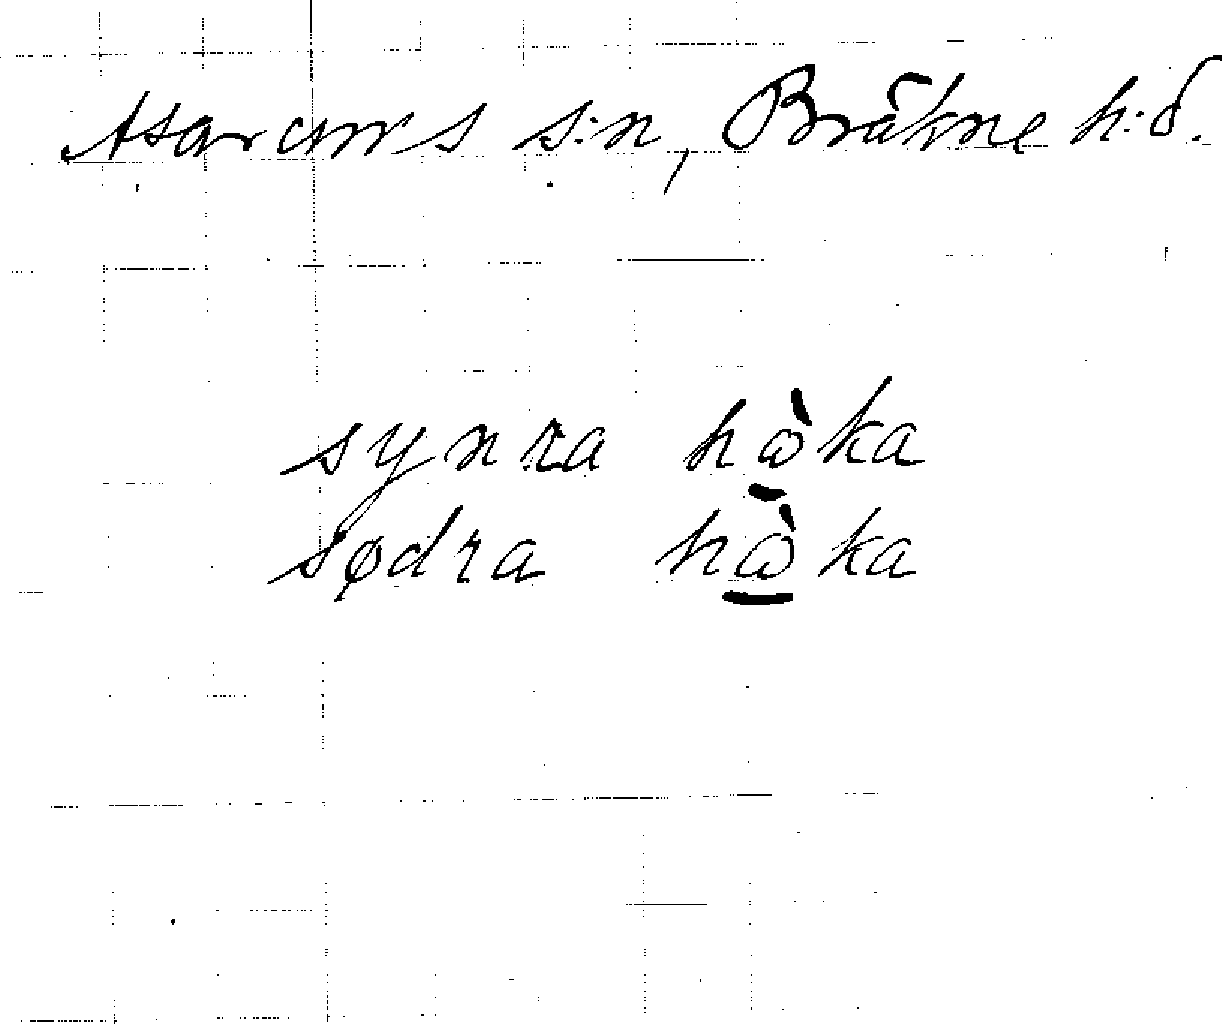 Asarums s:n, Bräkne h:d.
synra hàka
sødra hàka